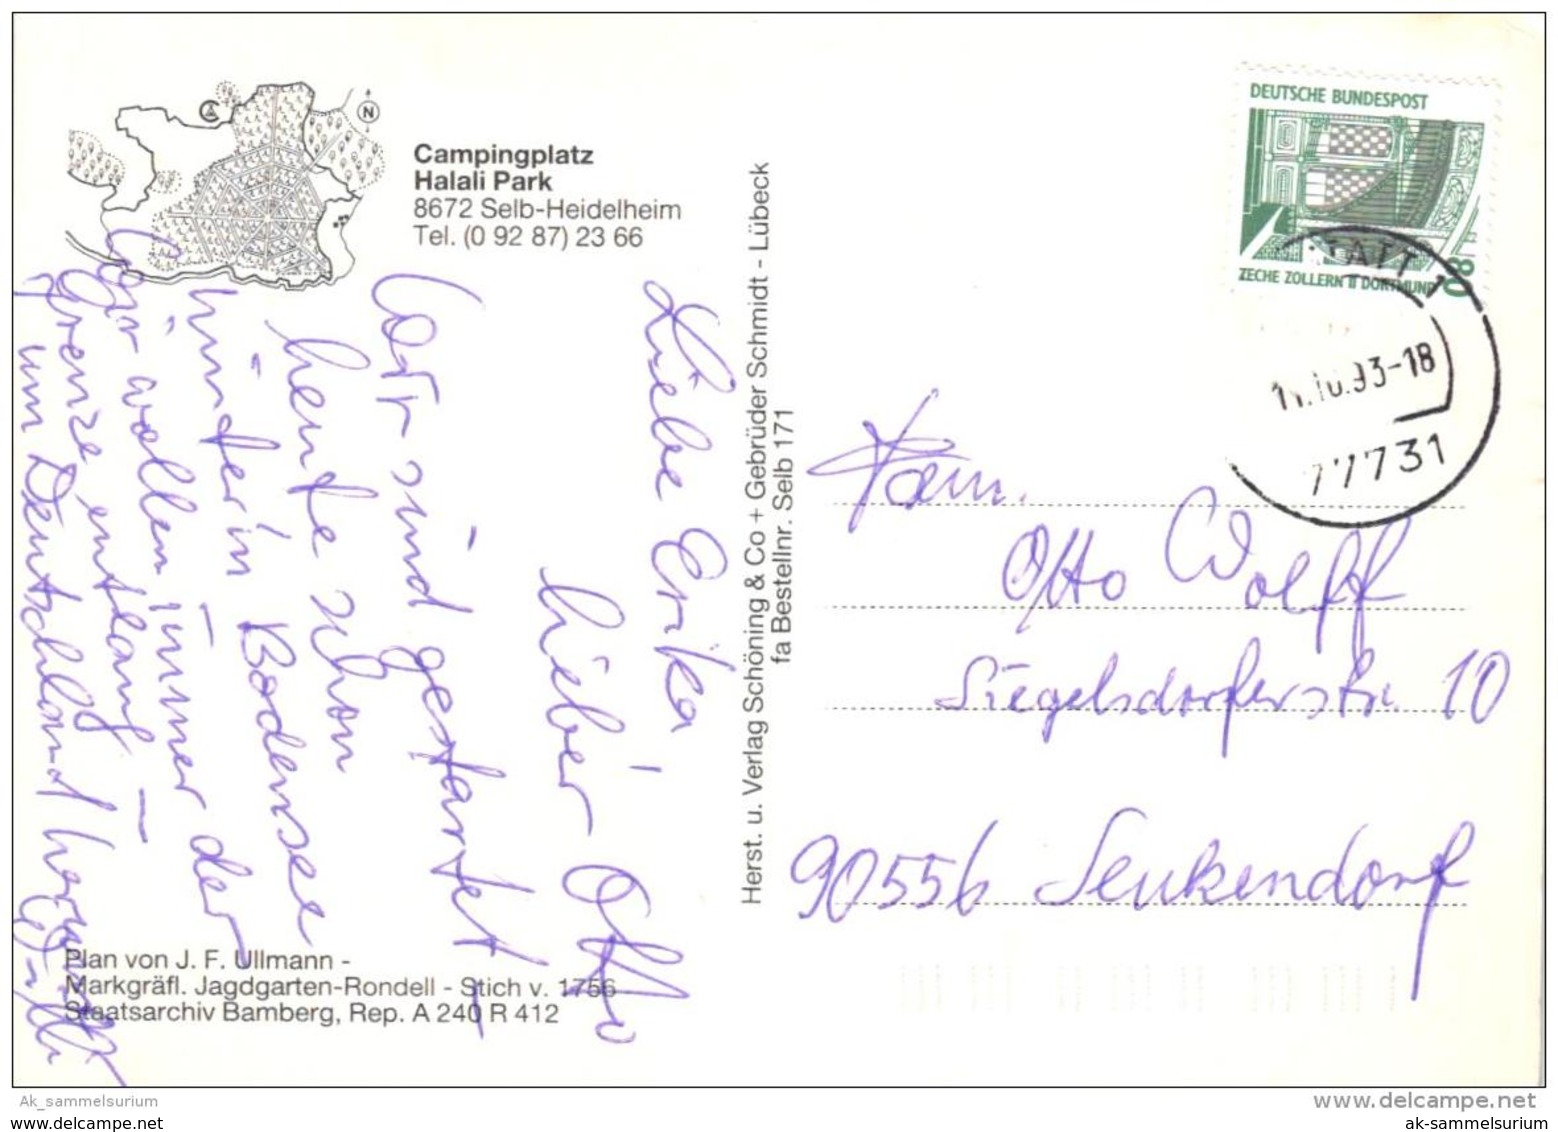 N
Campingplatz
Halali Park
8672 Selb-Heidelheim
Tel. (0 92 87) 23 66
Liebe Erika
lieber Otto
Wir sind gestartet –
heute schon
hinter'n Bodensee
Wir wollen immer der
Grenze entlang –
um Deutschland herum
Willi
Plan von J. F. Ullmann -
Markgräfl. Jagdgarten-Rondell - Stich v. 1756
Staatsarchiv Bamberg, Rep. A 240 R 412
Herst. u. Verlag Schöning & Co + Gebrüder Schmidt - Lübeck
fa Bestellnr. Selb 171
DEUTSCHE BUNDESPOST
ZECHE ZOLLERN II DORTMUND
80
TATT 1
10.93-18
77731
Fam.
Otto Wolff
Siegelsdorferstr. 10
90556 Seukendorf
Ak_sammelsurium
www.delcampe.net
www.delcampe.net
ak-sammelsurium